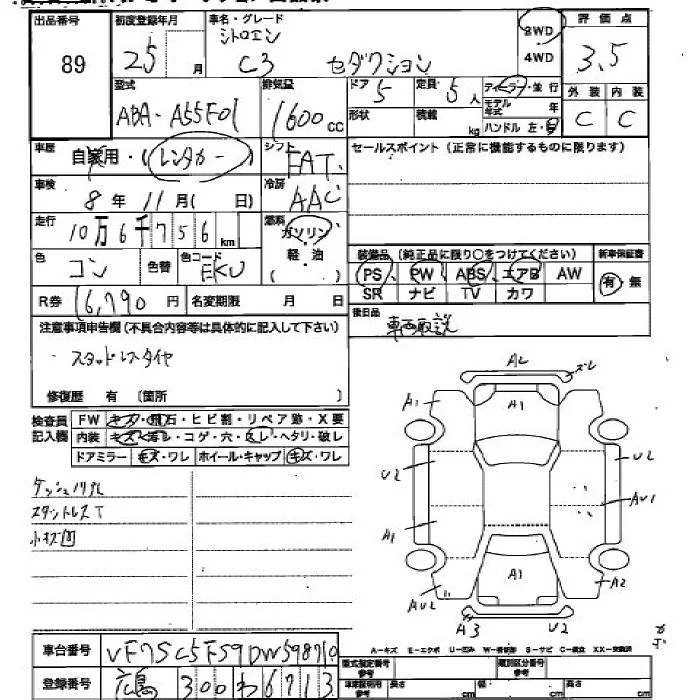 出品番号 初度登録年月 車名・グレード 評価点
89 25 月 シトロエン C3 セダクション 2WD 4WD 3.5
型式 排気量 ドア 5 定員 5 人 ディーラー・並行 外装 内装
ABA-A55F01 1600 cc 形状 積載 kg モデル年式 年 ハンドル 左・右 C C
車歴 自家用・(レンタカー) シフト FAT. セールスポイント (正常に機能するものに限ります)
車検 8年 11月( 日) 冷房 AAC
走行 10万6千756 km 燃料 ガソリン
軽油
( )
色 コン 色替 色コード EKU
装備品 (純正品に限り○をつけてください) 新車保証書
PS PW ABS エアB AW 有 無
SR ナビ TV カワ
R券 16,790 円 名変期限 月 日
後日品 車両取説
注意事項申告欄(不具合内容等は具体的に記入して下さい)
スタッドレスタイヤ
修復歴 有 〔箇所 〕
検査員記入欄 FW キズ・飛石・ヒビ割・リペア跡・X要
内装 キズ・汚レ・コゲ・穴・スレ・ヘタリ・破レ
ドアミラー キズ・ワレ ホイール・キャップ キズ・ワレ
スタットレスT
小キズ凹
A2 ズレ
A1 A1
U2 U2
AU1
A1
A1 A2
AU2
A3 U2
車台番号 VF7SC5FS9DW598710
登録番号 広島 300 わ 6713
A-キズ E-エクボ U-凹み W-補修跡 S-サビ C-腐食 XX-交換済
型式指定番号 参考 類別区分番号 参考
車庫証明用 参考 長さ cm 幅 cm 高さ cm